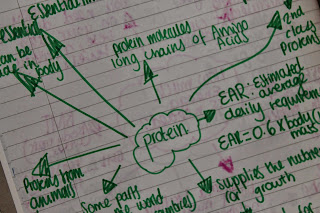 Essential
essential
can be
made in body
protein molecules
long chains of Amino
Acids
2nd
class
Protein
EAR: Estimated
average
daily requirem
EAR=0.6 x body
mass
protein
Proteins from
animals
Some parts
world
supplies the nutrie
for growth
for